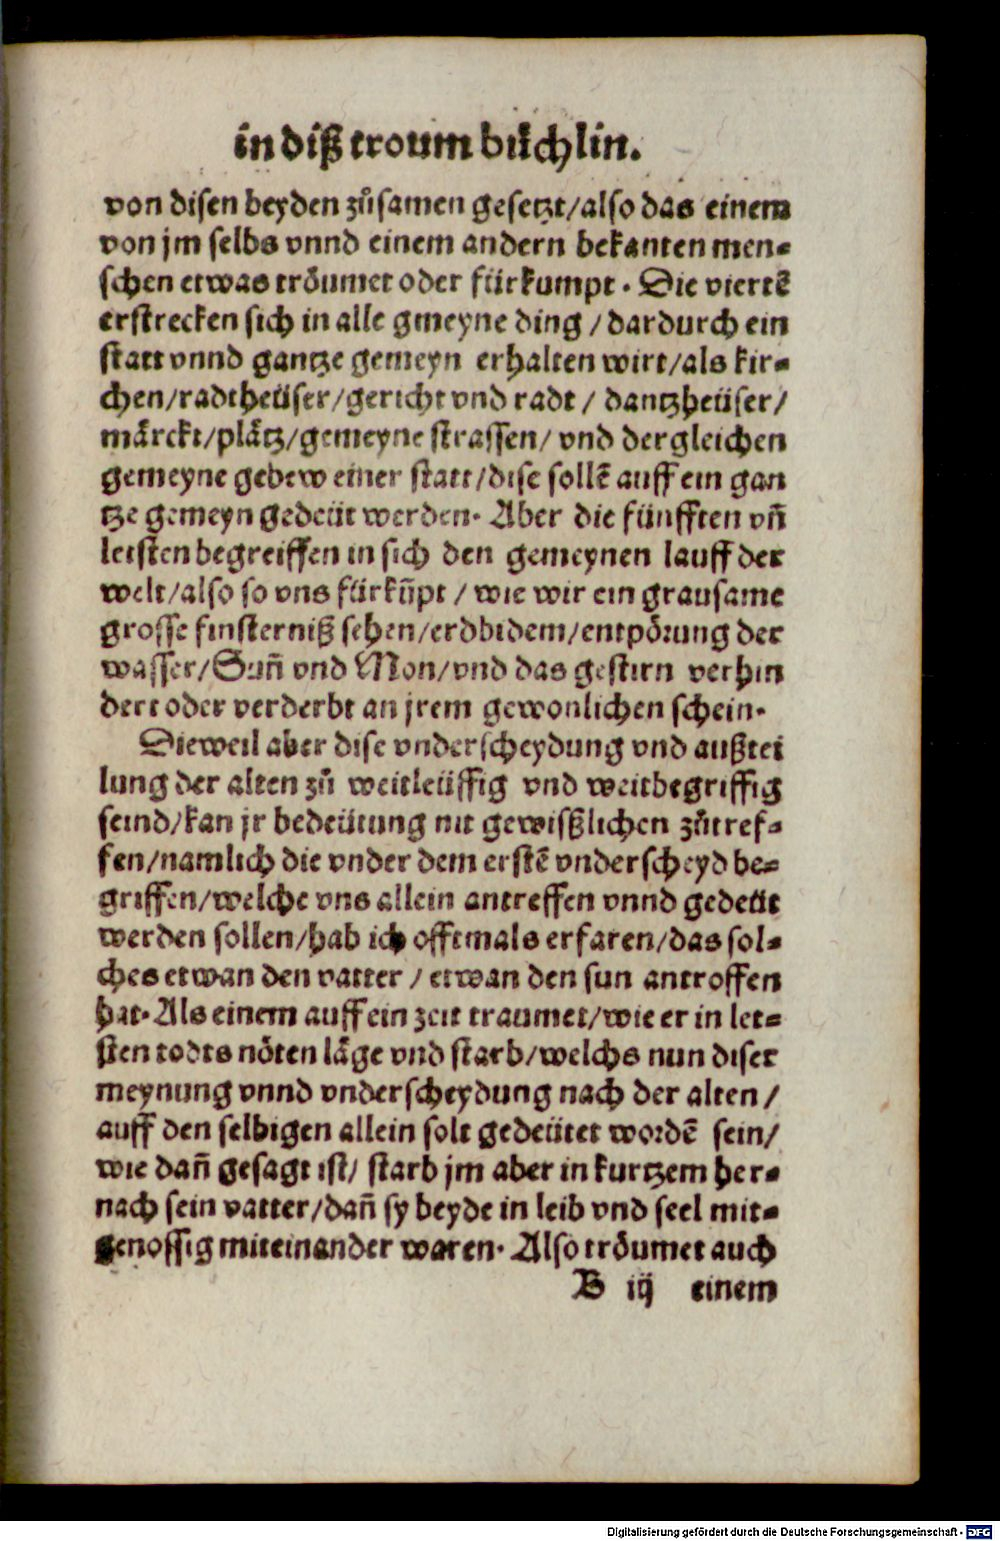 in diß troum büchlin.
von disen beyden zůsamen gesetzt/also das einem
von jm selbs vnnd einem andern bekanten men-
schen etwas trŏumet oder fürkumpt. Die viertē
erstrecken sich in alle gmeyne ding / dardurch ein
statt vnnd gantze gemeyn erhalten wirt/als kir-
chen/radtheüser/gericht vnd radt / dantzheüser/
mårckt/plåtz/gemeyne strassen/ vnd dergleichen
gemeyne gebew einer statt/dise sollē auff ein gan
tze gemeyn gedeüt werden. Aber die fünfften vñ
letsten begreiffen in sich den gemeynen lauff der
welt/also so vns fürkūpt / wie wir ein grausame
grosse finsterniß sehen/erdbidem/entpŏrung der
wasser/Suñ vnd Mon/vnd das gestirn verhin
dert oder verderbt an jrem gewonlichen schein.
Dieweil aber dise vnderscheydung vnd außtei
lung der alten zů weitleüffig vnd weitbegriffig
seind/kan jr bedeütung nit gewißlichen zůtref-
fen/namlich die vnder dem erstē vnderscheyd be-
griffen/welche vns allein antreffen vnnd gedeüt
werden sollen/hab ich offtmals erfaren/das sol-
ches etwan den vatter / etwan den sun antroffen
hat. Als einem auff ein zeit traumet/wie er in let-
sten todts nŏten låge vnd starb/welchs nun diser
meynung vnnd vnderscheydung nach der alten /
auff den selbigen allein solt gedeütet wordē sein/
wie dañ gesagt ist/ starb jm aber in kurtzem her-
nach sein vatter/dañ sy beyde in leib vnd seel mit-
genossig miteinander waren. Also trŏumet auch
B iij einem
Digitalisierung gefördert durch die Deutsche Forschungsgemeinschaft - DFG